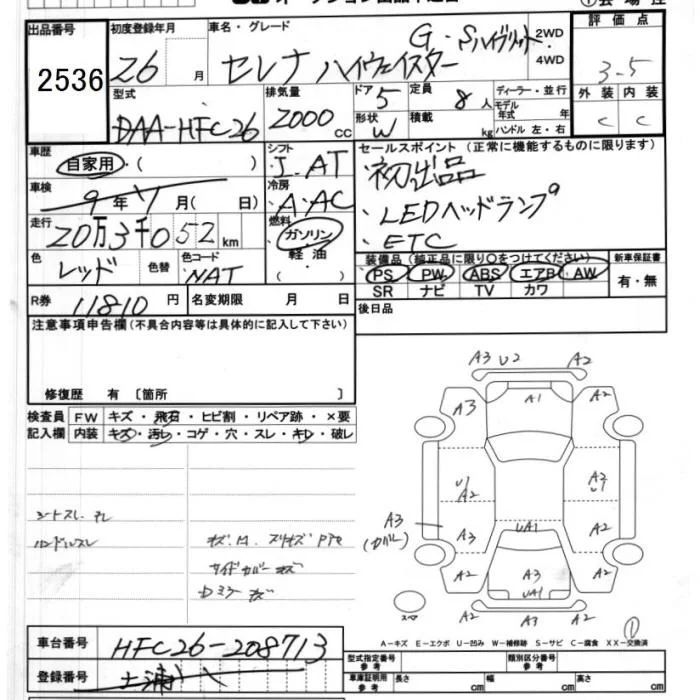 出品番号 初度登録年月 車名・グレード G・Sハイブリッド 2WD 評価点
2536 26 月 セレナ ハイウェイスター 4WD 3.5
型式 排気量 ドア 5 定員 8 人 ディーラー・並行 外装 内装
DAA-HFC26 2000 CC 形状 W 積載 kg モデル年式 年 C C
ハンドル 左・右
車歴 自家用・( ) シフト I.AT セールスポイント (正常に機能するものに限ります)
車検 9年 月( 日) 冷房 A・AC ・初出品
走行 20万3千052km 燃料 ガソリン ・LEDヘッドランプ
色 レッド 色替 色コード NAT 軽油 ・ETC
装備品 (純正品に限り○をつけてください) 新車保証書
PS PW ABS エアB AW 有・無
SR ナビ TV カワ
R券 11810 円 名変期限 月 日 後日品
注意事項申告欄(不具合内容等は具体的に記入して下さい)
修復歴 有 〔箇所 〕
検査員 FW キズ・飛石・ヒビ割・リペア跡・×要
記入欄 内装 キズ・汚し・コゲ・穴・スレ・キレ・破レ
シートスレ
ハンドルスレ
サイドカバー キズ
A3 U2 A2
A3 A1 A2
A2 A2
A3 (カバー) A3 UA1 A2
A2 A3 A2
UA1
スペア A2 A3 A2
①
A-キズ E-エクボ U-凹み W-補修跡 S-サビ C-腐食 XX-交換済
車台番号 HFC26-208713
登録番号 土浦
型式指定番号 参考 類別区分番号 参考
車庫証明用 参考 長さ cm 幅 cm 高さ cm